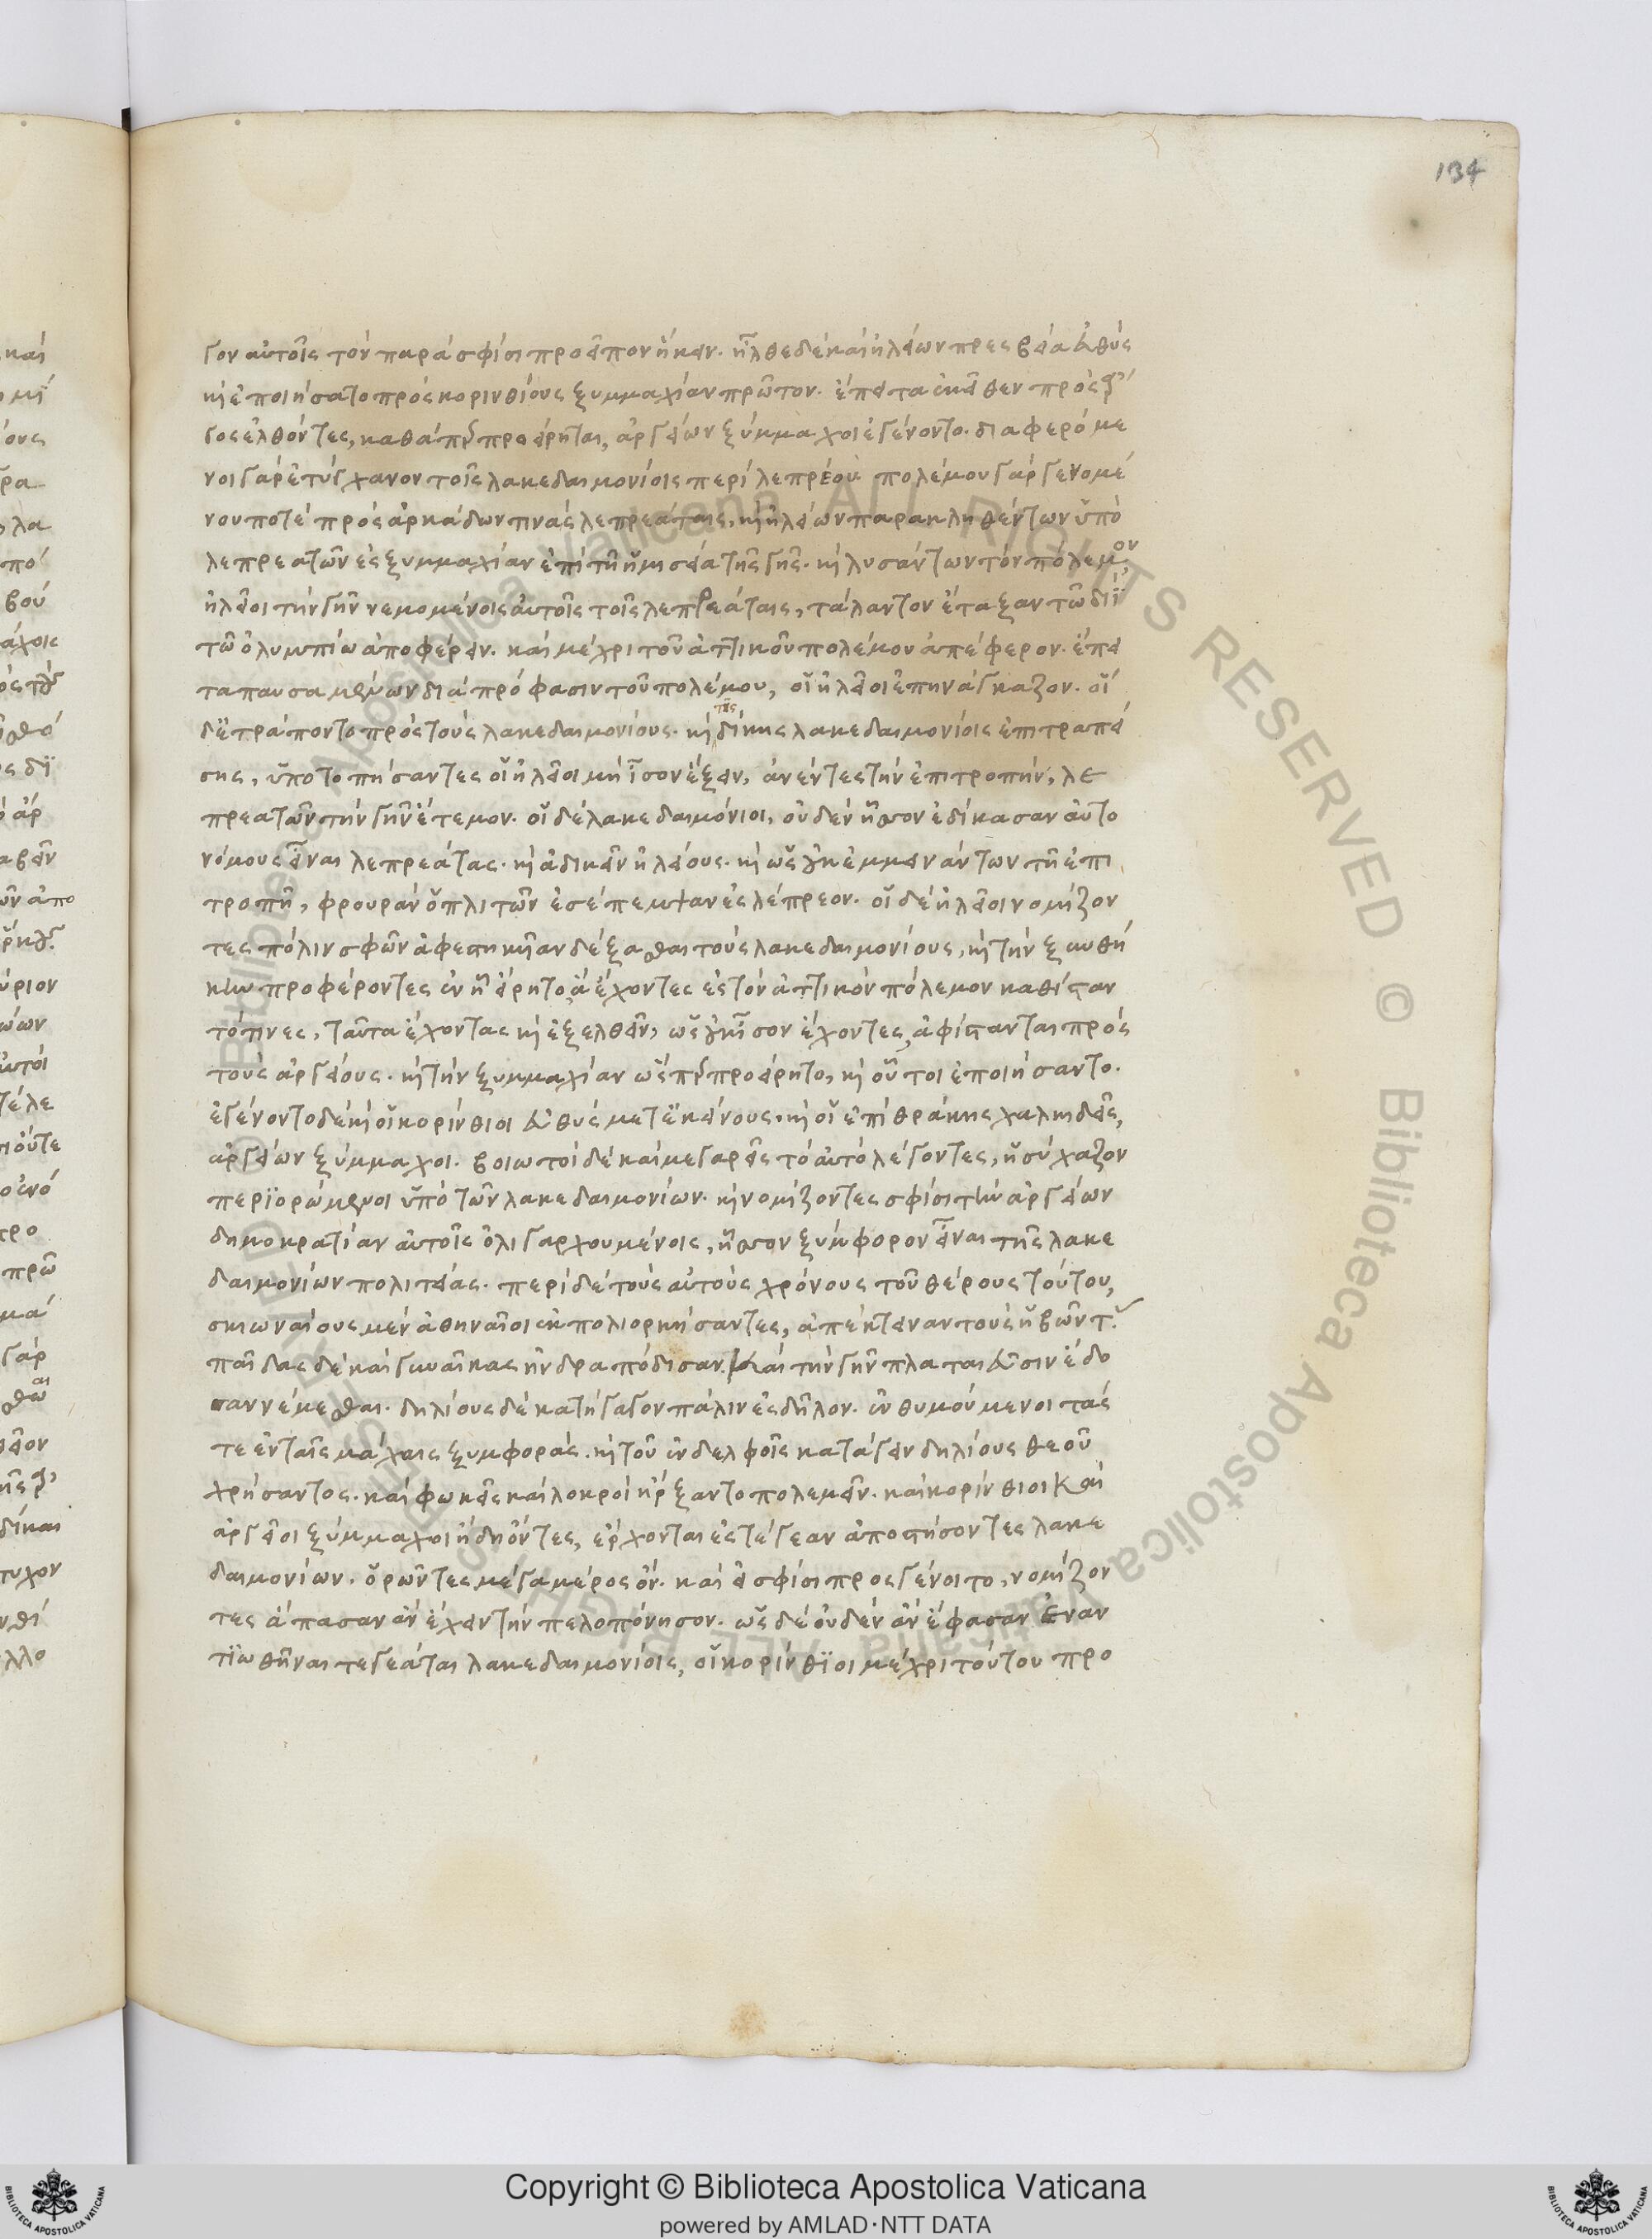 134
γον αὐτοῖς τὸν παρὰ σφίσι προεῖπον ἥκειν. ἦλθε δὲ καὶ ἠλείων πρεσβεία εὐθὺς
κ(αὶ) ἐποιήσατο πρὸς κορινθίους ξυμμαχίαν πρῶτον. ἔπειτα ἐκεῖθεν πρὸς ἄρ
γος ἐλθόντες, καθάπερ προείρηται, ἀργείων ξύμμαχοι ἐγένοντο. διαφερόμε
νοι γὰρ ἐτύγχανον τοῖς λακεδαιμονίοις περὶ λεπρέου. πολέμου γὰρ γενομέ
νου ποτὲ πρὸς ἀρκάδων τινὰς λεπρεάταις, κ(αὶ) ἠλείων παρακληθέντων ὑπὸ
λεπρεατῶν ἐς ξυμμαχίαν ἐπὶ τῇ ἡμισείᾳ τῆς γῆς. κ(αὶ) λυσάντων τὸν πόλεμον,
ἠλεῖοι τὴν γῆν νεμομένοις αὐτοῖς τοῖς λεπρεάταις, τάλαντον ἔταξαν τῶ διῒ
τῶ ὀλυμπίω ἀποφέρειν. καὶ μέχρι τοῦ ἀττικοῦ πολέμου ἀπέφερον. ἔπει
τα παυσαμένων διὰ πρόφασιν τοῦ πολέμου, οἱ ἠλεῖοι ἐπηνάγκαζον. οἱ
δ' ἐτράποντο πρὸς τοὺς λακεδαιμονίους. κ(αὶ) τῆς δίκης λακεδαιμονίοις ἐπιτραπεί
σης, ὑποτοπήσαντες οἱ ἠλεῖοι μὴ ἴσον ἕξειν, ἀνέντες τὴν ἐπιτροπὴν, λε
πρεατῶν τὴν γῆν ἔτεμον. οἱ δὲ λακεδαιμόνιοι, οὐδὲν ἧσσον ἐδίκασαν αὐτο
νόμους εἶναι λεπρεάτας. κ(αὶ) ἀδικεῖν ἠλείους. κ(αὶ) ὡς οὐκ ἐμμεινάντων τῇ ἐπι
τροπῇ, φρουρὰν ὁπλιτῶν ἐσέπεμψαν ἐς λέπρεον. οἱ δὲ ἠλεῖοι νομίζον
τες πόλιν σφῶν ἀφεστηκυῖαν δέξασθαι τοὺς λακεδαιμονίους, κ(αὶ) τὴν ξυνθή
κην προφέροντες ἐν ᾗ εἴρητο, ἃ ἔχοντες ἐς τὸν ἀττικὸν πόλεμον καθίσταν
τό τινες, ταῦτα ἔχοντας κ(αὶ) ἐξελθεῖν, ὡς οὐκ ἴσον ἔχοντες, ἀφίστανται πρὸς
τοὺς ἀργείους. κ(αὶ) τὴν ξυμμαχίαν ὥσπερ προείρητο, κ(αὶ) οὗτοι ἐποιήσαντο.
ἐγένοντο δὲ κ(αὶ) οἱ κορίνθιοι εὐθὺς μετ' ἐκείνους, κ(αὶ) οἱ ἐπὶ θράκης χαλκιδεῖς,
ἀργείων ξύμμαχοι. βοιωτοὶ δὲ καὶ μεγαρεῖς τὸ αὐτὸ λέγοντες, ἡσύχαζον
περιορώμενοι ὑπὸ τῶν λακεδαιμονίων. κ(αὶ) νομίζοντες σφίσι τὴν ἀργείων
δημοκρατίαν αὐτοῖς ὀλιγαρχουμένοις, ἧσσον ξύμφορον εἶναι τῆς λακε
δαιμονίων πολιτείας. περὶ δὲ τοὺς αὐτοὺς χρόνους τοῦ θέρους τούτου,
σκιωναίους μὲν ἀθηναῖοι ἐκπολιορκήσαντες, ἀπέκτειναν τοὺς ἡβῶντ(ας).
παῖδας δὲ καὶ γυναῖκας ἠνδραπόδισαν. καὶ τὴν γῆν πλαταιεῦσιν ἔδο
σαν νέμεσθαι. δηλίους δὲ κατήγαγον πάλιν ἐς δῆλον. ἐνθυμούμενοι τάς
τε ἐν ταῖς μάχαις ξυμφορὰς. κ(αὶ) τοῦ ἐν δελφοῖς κατάγειν δηλίους θεοῦ
χρήσαντος. καὶ φωκεῖς καὶ λοκροὶ ἤρξαντο πολεμεῖν. καὶ κορίνθιοι καὶ
ἀργεῖοι ξύμμαχοι ἤδη ὄντες, ἔρχονται ἐς τέγεαν ἀποστήσοντες λακε
δαιμονίων. ὁρῶντες μέγα μέρος ὄν. καὶ εἰ σφίσι προσγένοιτο, νομίζον
τες ἅπασαν ἂν ἔχειν τὴν πελοπόνησον. ὡς δὲ οὐδὲν ἂν ἔφασαν ἐναν
τιωθῆναι τεγεάται λακεδαιμονίοις, οἱ κορίνθιοι μέχρι τούτου προ
Biblioteca Apostolica Vaticana ALL RIGHTS RESERVED ©
Copyright © Biblioteca Apostolica Vaticana
powered by AMLAD·NTT DATA